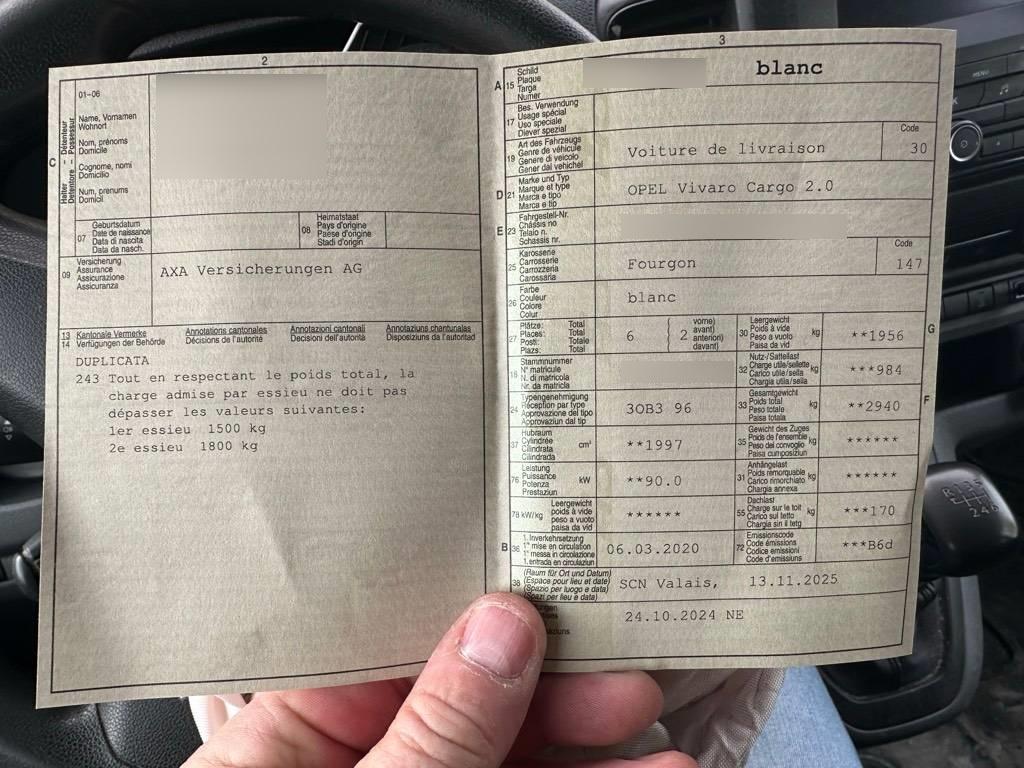 2
01-06
Halter – Détenteur
Detentore – Possessur
C
Name, Vornamen
Wohnort
Nom, prénoms
Domicile
Cognome, nomi
Domicilio
Num, prenums
Domicil
07
Geburtsdatum
Date de naissance
Data di nascita
Data da nasch.
08
Heimatstaat
Pays d'origine
Paese d'origine
Stadi d'origin
09
Versicherung
Assurance
Assicurazione
Assicuranza
AXA Versicherungen AG
13
14
Kantonale Vermerke
Verfügungen der Behörde
Annotations cantonales
Décisions de l'autorité
Annotazioni cantonali
Decisioni dell'autorità
Annotaziuns chantunalas
Disposiziuns da l'autoritad
DUPLICATA
243 Tout en respectant le poids total, la
charge admise par essieu ne doit pas
dépasser les valeurs suivantes:
1er essieu 1500 kg
2e essieu 1800 kg
3
A
15
Schild
Plaque
Targa
Numer
blanc
17
Bes. Verwendung
Usage spécial
Uso speciale
Diever spezial
19
Art des Fahrzeugs
Genre de véhicule
Genere di veicolo
Gener dal vehichel
Voiture de livraison
Code
30
D
21
Marke und Typ
Marque et type
Marca e tipo
Marca e tip
OPEL Vivaro Cargo 2.0
E
23
Fahrgestell-Nr.
Châssis no
Telaio n.
Schassis nr.
25
Karosserie
Carrosserie
Carrozzeria
Carossaria
Fourgon
Code
147
26
Farbe
Couleur
Colore
Colur
blanc
27
Plätze: Total
Places: Total
Posti: Totale
Plazs: Total
6
2
vorne)
avant)
anteriori)
davant)
30
Leergewicht
Poids à vide
Peso a vuoto
Paisa da vid
kg
**1956
G
18
Stammnummer
N° matricule
N. di matricola
Nr. da matricla
32
Nutz-/Sattellast
Charge utile/sellette
Carico utile/sella
Chargia utila/sella
kg
***984
24
Typengenehmigung
Réception par type
Approvazione del tipo
Approvaziun dal tip
3OB3 96
33
Gesamtgewicht
Poids total
Peso totale
Paisa totala
kg
**2940
F
37
Hubraum
Cylindrée
Cilindrata
Cilindrada
cm³
**1997
35
Gewicht des Zuges
Poids de l'ensemble
Peso del convoglio
Paisa cumposiziun
kg
******
76
Leistung
Puissance
Potenza
Prestaziun
kW
**90.0
31
Anhängelast
Poids remorquable
Carico rimorchiato
Chargia annexa
kg
******
78 kW/kg
Leergewicht
poids à vide
peso a vuoto
paisa da vid
******
55
Dachlast
Charge sur le toit
Carico sul tetto
Chargia sin il tetg
kg
***170
B
36
1. Inverkehrsetzung
1re mise en circulation
1a messa in circolazione
1. entrada en circulaziun
06.03.2020
72
Emissionscode
Code émissions
Codice emissioni
Code d'emissiuns
***B6d
38
(Raum für Ort und Datum)
(Espace pour lieu et date)
(Spazio per luogo e data)
(Spazi per lieu e data)
SCN Valais, 13.11.2025
24.10.2024 NE
MENU